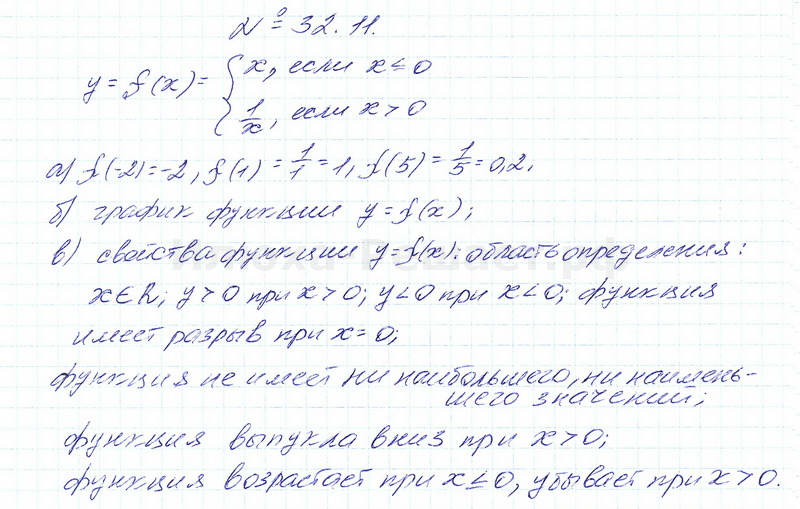 № 32.11.
y = f(x) = { x, если x ≤ 0
1/x, если x > 0
а) f(-2) = -2, f(1) = 1/1 = 1, f(5) = 1/5 = 0,2.
б) график функции y = f(x);
в) свойства функции y = f(x): область определения:
x ∈ R; y > 0 при x > 0; y < 0 при x < 0; функция
имеет разрыв при x = 0;
функция не имеет ни наибольшего, ни наимень-
шего значений;
функция выпукла вниз при x > 0;
функция возрастает при x ≤ 0, убывает при x > 0.